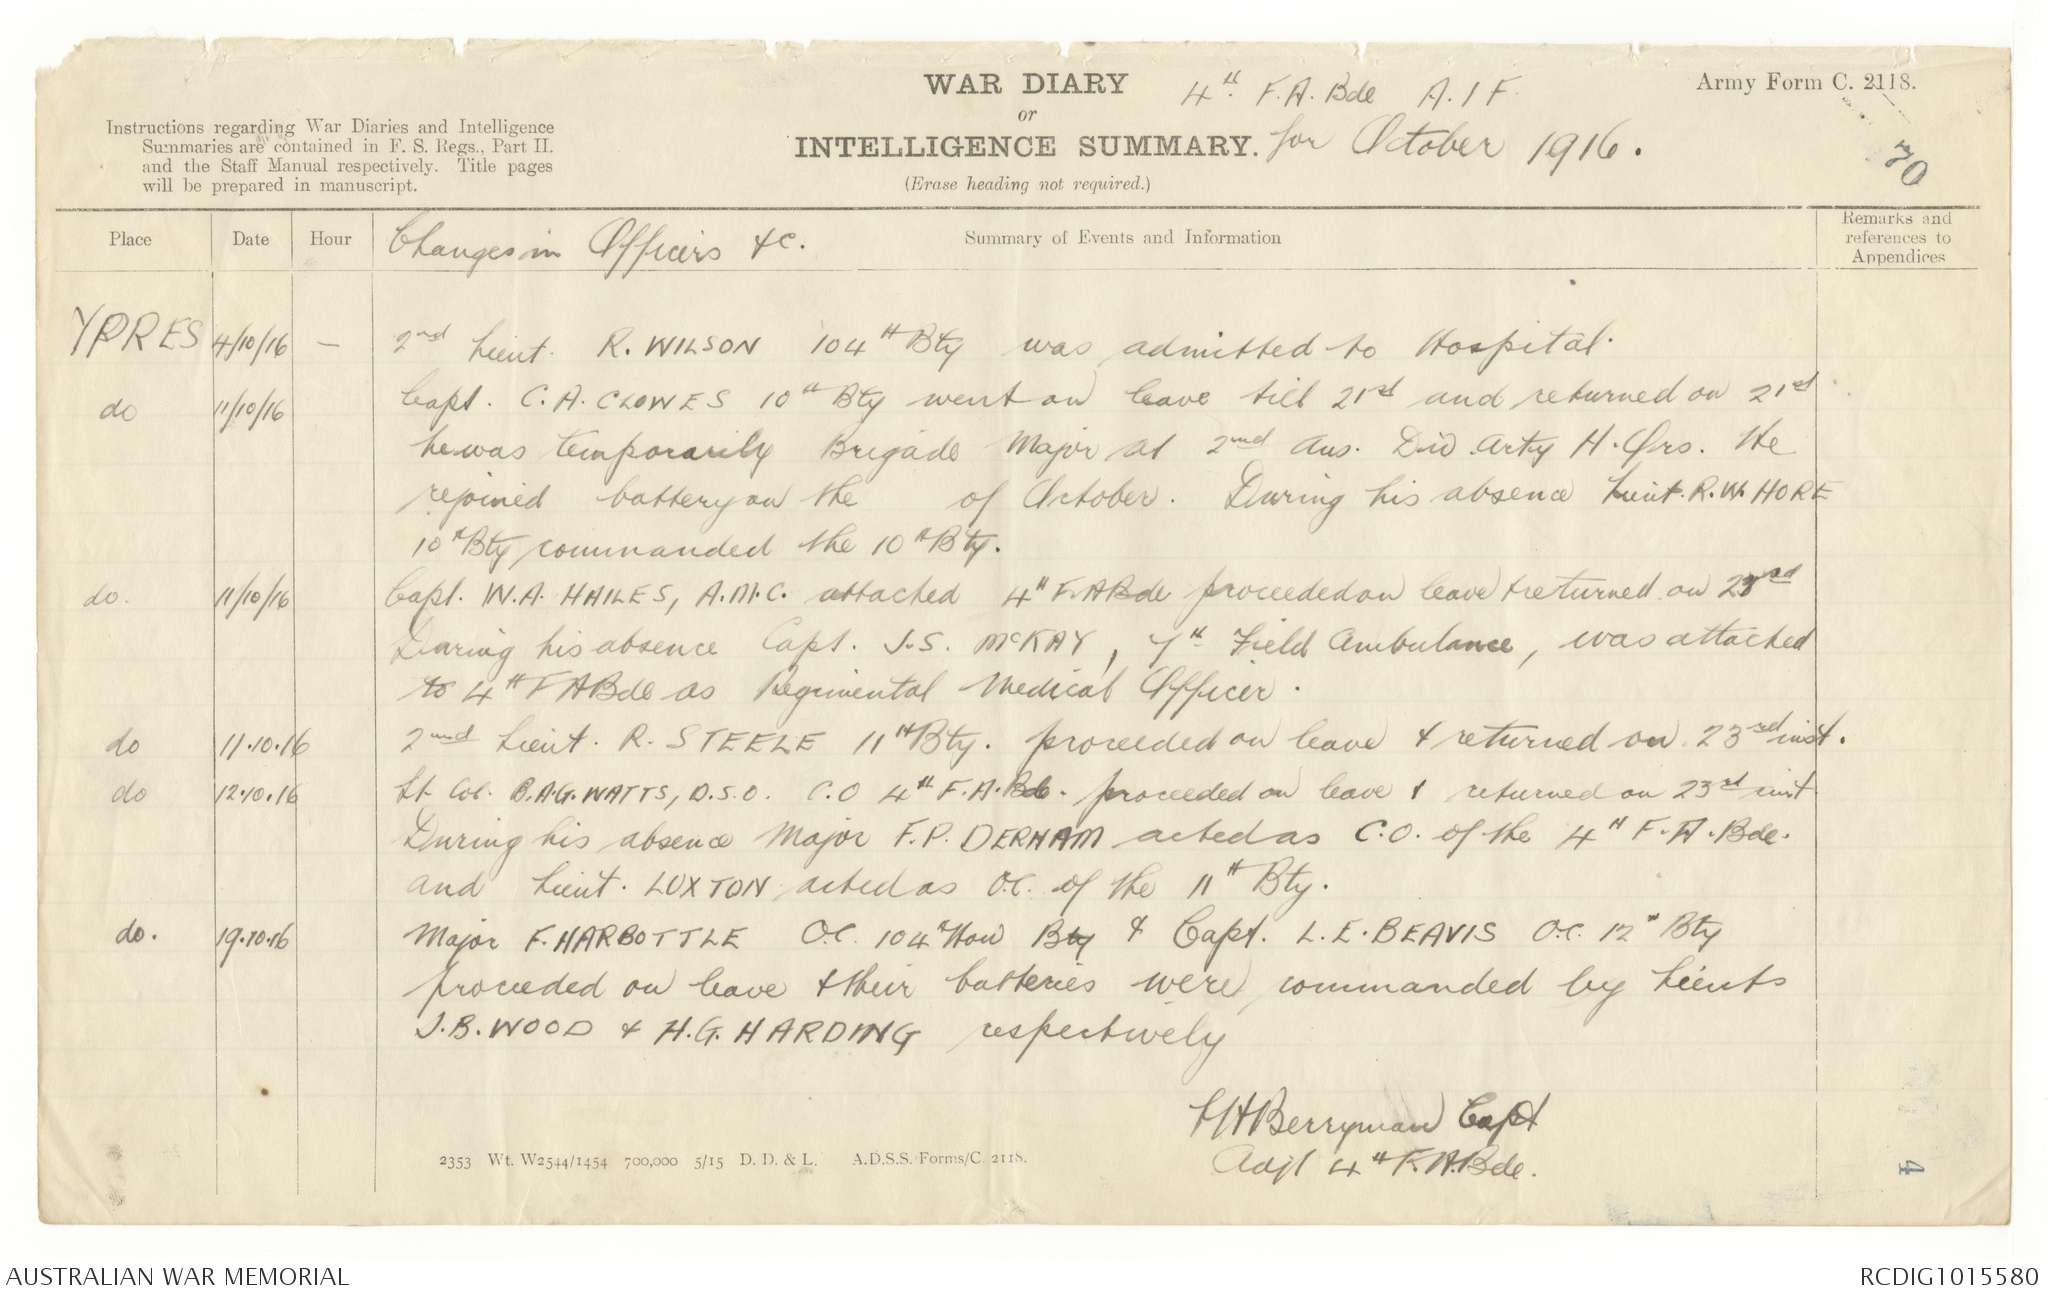 WAR DIARY 4th F.A. Bde A.I.F.
or
INTELLIGENCE SUMMARY. for October 1916.
(Erase heading not required.)
Army Form C. 2118.
70
Instructions regarding War Diaries and Intelligence
Summaries are contained in F. S. Regs., Part II.
and the Staff Manual respectively. Title pages
will be prepared in manuscript.
Place Date Hour Changes in Officers &c. Summary of Events and Information Remarks and
references to
Appendices
YPRES 4/10/16 — 2nd Lieut. R. WILSON 104th Bty was admitted to Hospital.
do 11/10/16 Capt. C.A. CLOWES 10th Bty went on leave till 21st and returned on 21st
he was temporarily Brigade Major at 2nd Aus. Div. Arty H.Qrs. He
rejoined battery on the of October. During his absence Lieut. R.W. HORE
10th Bty commanded the 10th Bty.
do. 11/10/16 Capt. W.A. HAILES, A.M.C. attached 4th F.A Bde proceeded on leave & returned on 23rd
During his absence Capt. J.S. McKAY, 7th Field Ambulance, was attached
to 4th F A Bde as Regimental Medical Officer.
do 11.10.16 2nd Lieut. R. STEELE 11th Bty. proceeded on leave & returned on 23rd inst.
do 12.10.16 Lt Col. B.A.G. WATTS, D.S.O. C.O 4th F.A. Bde. proceeded on leave & returned on 23rd inst
During his absence Major F.P. DERHAM acted as C.O. of the 4th F.A. Bde.
and Lieut. LUXTON acted as O.C. of the 11th Bty.
do. 19.10.16 Major F. HARBOTTLE O.C. 104th How Bty & Capt. L.E. BEAVIS O.C. 12th Bty
proceeded on leave & their batteries were commanded by Lieuts
J.B. WOOD & H.G. HARDING respectively
Berryman Capt
Adjt 4th F.A. Bde.
2353 Wt. W2544/1454 700,000 5/15 D. D. & L. A.D.S.S. Forms/C. 2118.
4
AUSTRALIAN WAR MEMORIAL RCDIG1015580